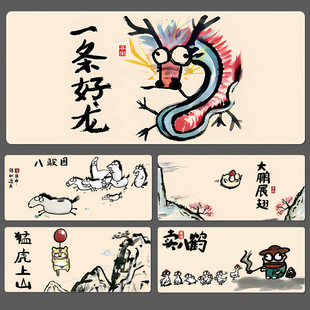 一条好龙
八骏图
大鹏展翅
猛虎上山
卖鹤